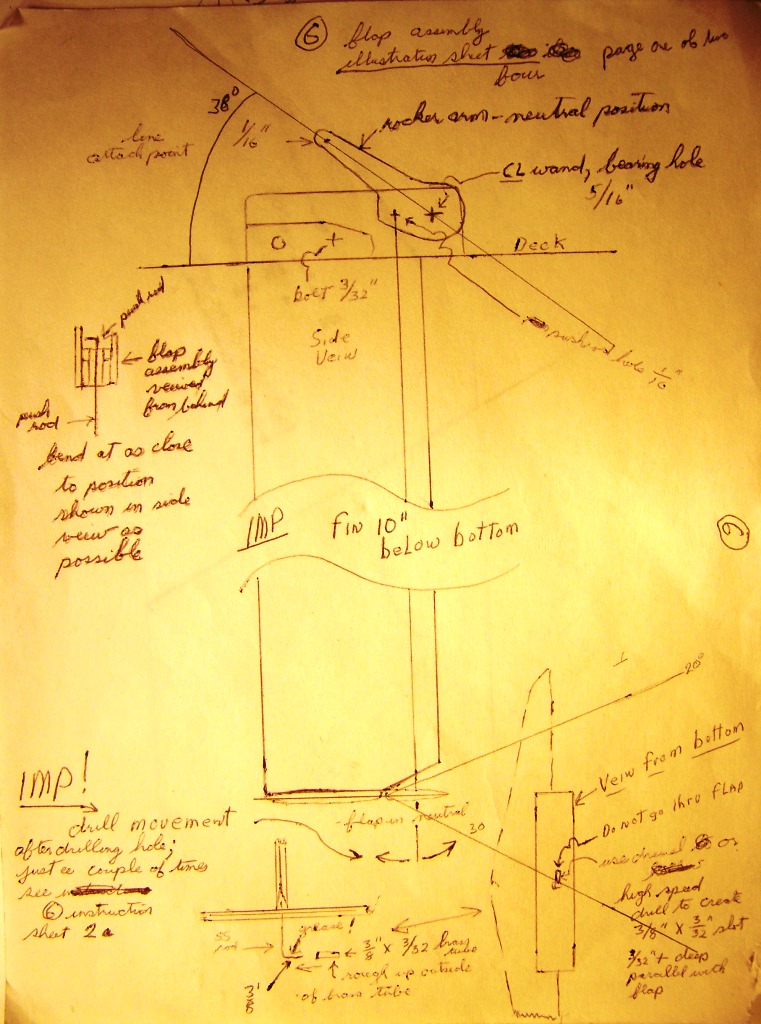 6 flap assembly
illustration sheet page one of two
four
38°
rocker arm - neutral position
line
attach point
1/16"
CL wand, bearing hole
5/16"
Deck
bolt 3/32"
Side
Veiw
hole 1/16"
push rod
flap
assembly
veiwed
from behind
push
rod
bend at as close
to position
shown in side
veiw as
possible
IMP
FIN 10"
below bottom
6
20°
Veiw from bottom
Do not go thru FLAP
use dremel or
high speed
drill to create
3/8" X 3/32" slot
3/32"+ deep
parallel with
flap
-flap in neutral
30
IMP!
drill movement
after drilling hole;
just a couple of times
see
6 instruction
sheet 2a
SS
rod
grease!
3/8" X 3/32 brass
tube
rough up outside
of brass tube
3/8"